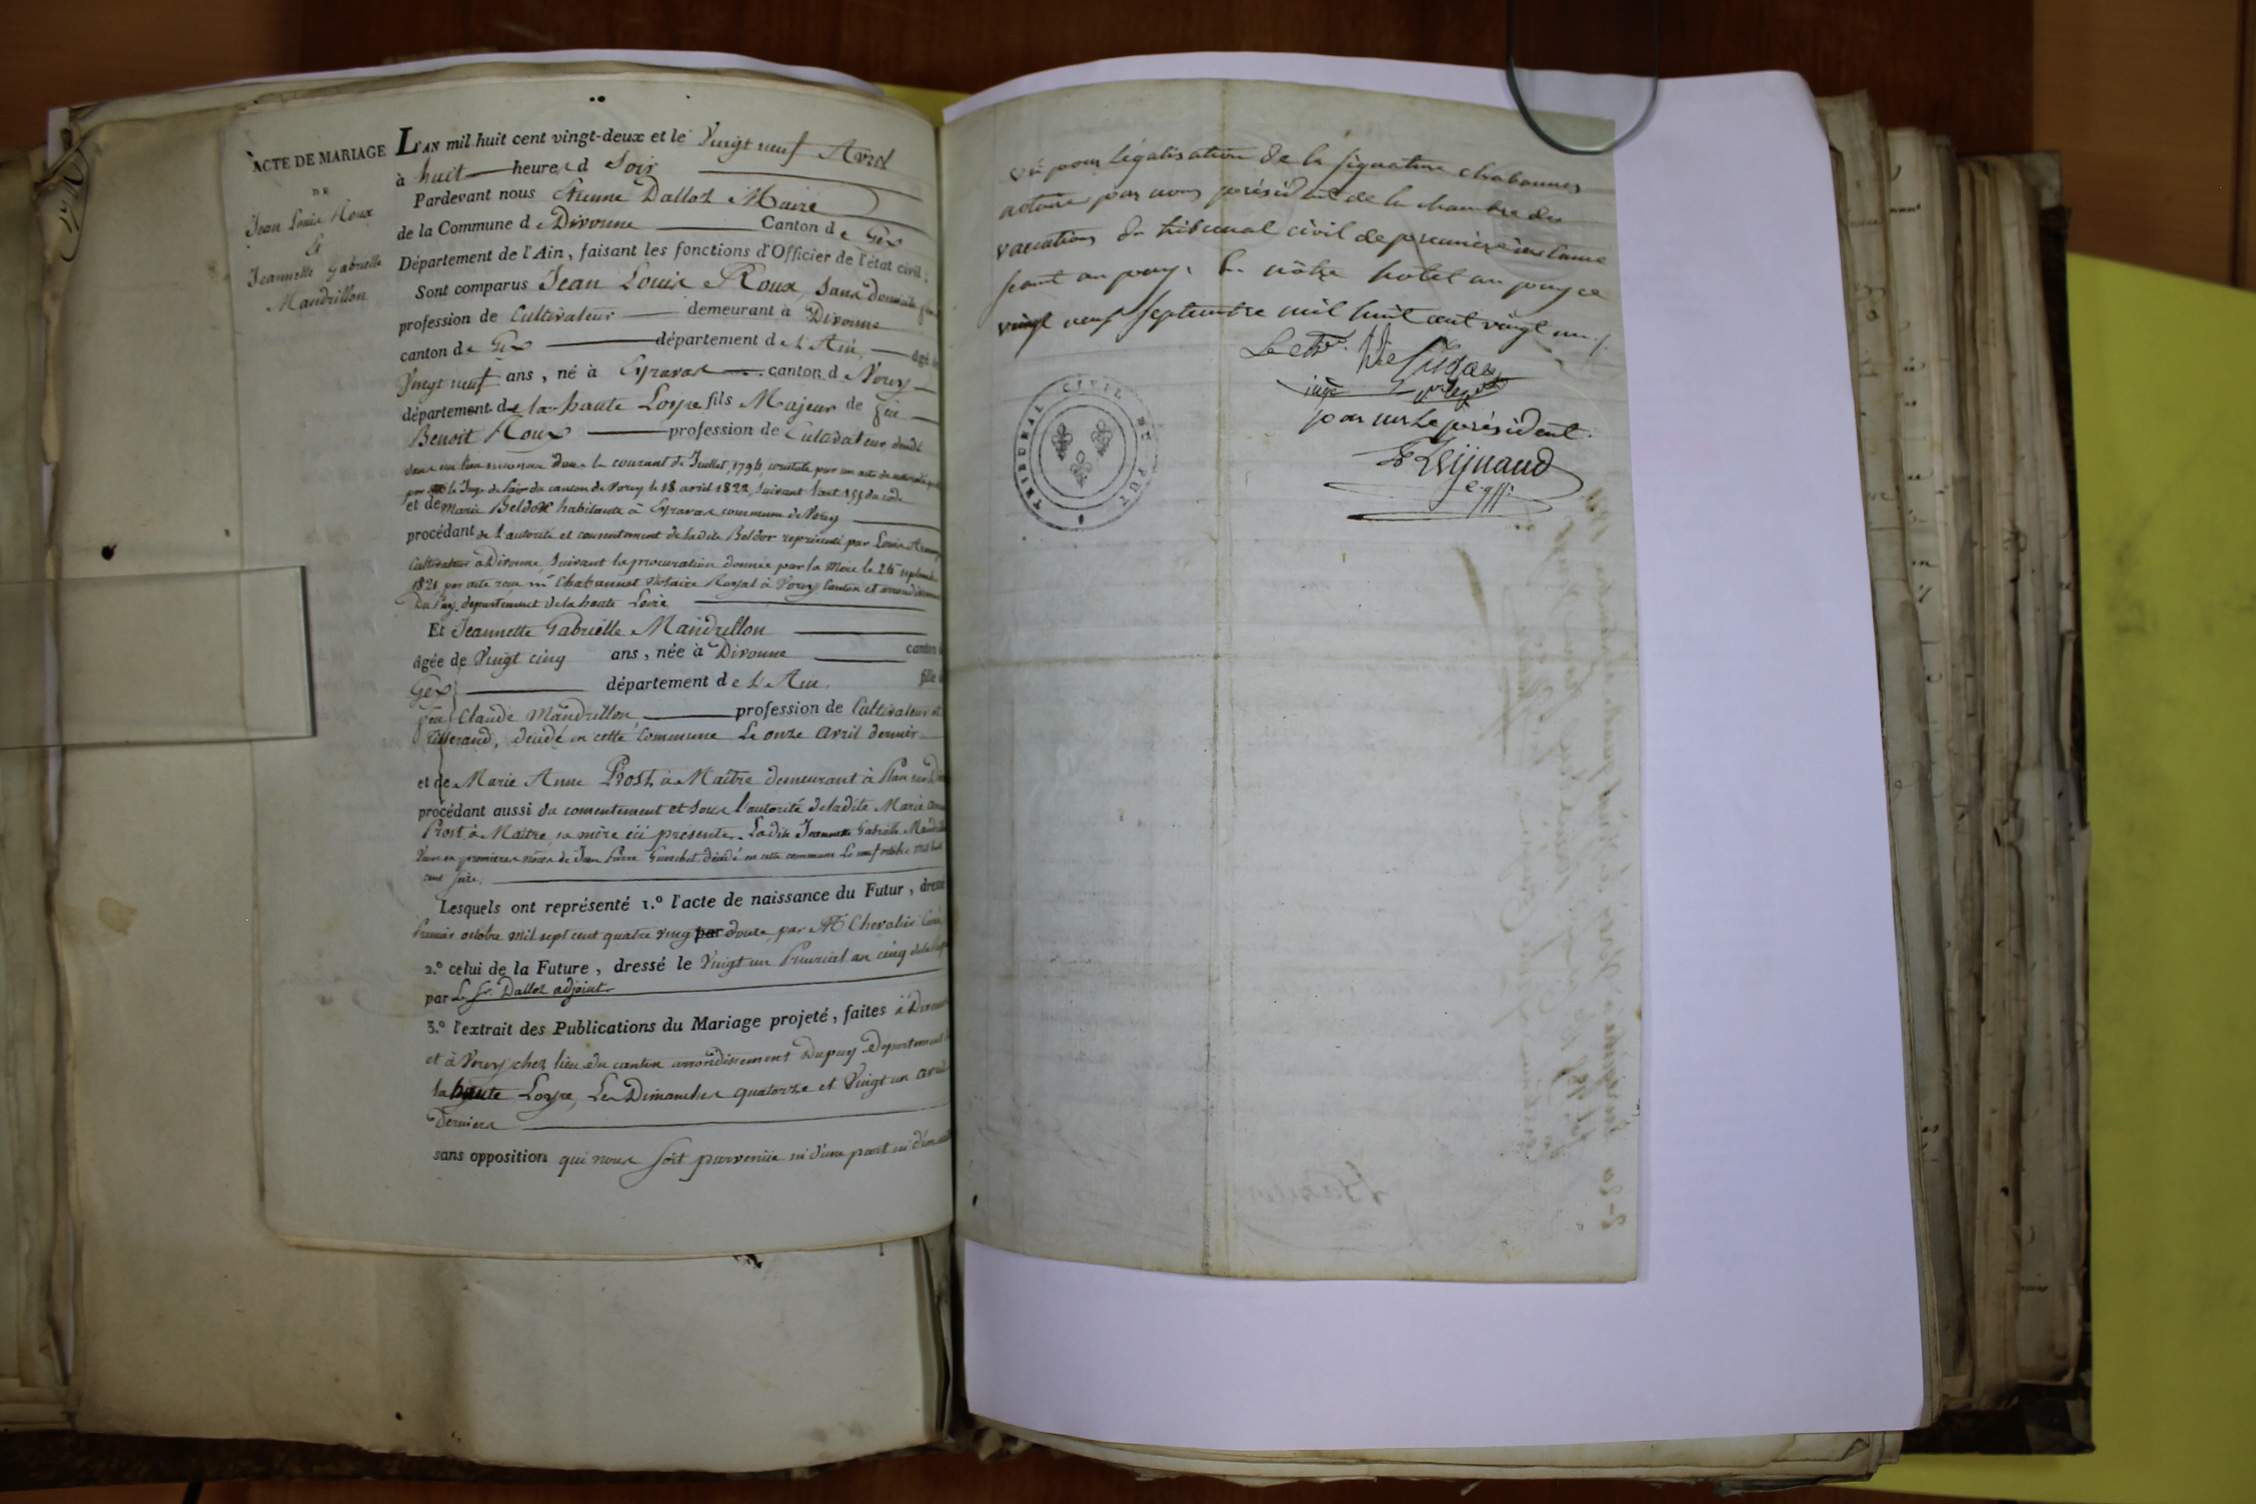 ACTE DE MARIAGE
DE
Jean Louis Roux
&
Jeannette Gabrielle
Mandrillon
L'AN mil huit cent vingt-deux et le Vingt neuf Avril
à huit heures d Soir
Pardevant nous Etienne Dalloz Maire
de la Commune de Divonne Canton de Gex
Département de l'Ain, faisant les fonctions d'Officier de l'état civil;
Sont comparus Jean Louis Roux, sans domicile
profession de Cultivateur demeurant à Divonne
canton de Gex département de L'Ain, âgé
Vingt neuf ans, né à Eyravas canton d Vorey
département de la haute Loyre fils Majeur de feu
Benoit Roux profession de Cultivateur, décédé
dans le courant de Juillet, 1794, constaté par un acte de notoriété
par le Juge de Paix du canton de Vorey le 18 avril 1822, suivant l'art 155 du code
et de Marie Beldor habitante à Eyravas commune de Vorey
procédant de l'autorité et consentement de ladite Beldor représenté par Louis
Cultivateur à Divonne, suivant la procuration donnée par la Mère le 26 septembre
1821 par acte reçu me Chabannes Notaire Royal à Vorey Canton et arrondissement
Du Puy, département de la haute Loire
Et Jeannette Gabrielle Mandrillon
âgée de Vingt cinq ans, née à Divonne canton
Gex département de L'Ain. fille
feu Claude Mandrillon profession de Cultivateur et
Tisserand, décédé en cette Commune Le onze Avril dernier
et de Marie Anne Prost à Maître demeurant à
procédant aussi du consentement et sous l'autorité de ladite Marie Anne
Prost à Maître, sa mère ici présente. Ladite Jeannette Gabrielle
Veuve en premières nôces de Jean Pierre décédé en cette commune Le neuf octobre mil huit
cent seize.
Lesquels ont représenté 1.° l'acte de naissance du Futur, dressé
Premier octobre mil sept cent quatre vingt par douze, par Mr Chevalier Curé,
2.° celui de la Future, dressé le Vingt un Prairial an cinq de la
par Le Sr. Dalloz adjoint
3.° l'extrait des Publications du Mariage projeté, faites à Divonne
et à Vorey chez lieu du canton arrondissement Dupuy Département
la haute Loyre, Les Dimanches quatorze et Vingt un avril
Derniers
sans opposition qui nous soit parvenue ni d'une part ni d'autre
Vû pour légalisation de la signature chabannes
notaire par nous président de la chambre des
vacations du tribunal civil de première instance
séant au puy. En nôtre hotel au puy ce
vingt neuf septembre mil huit cent vingt un /.
juge
par mr Le président
TRIBUNAL CIVIL DU PUY